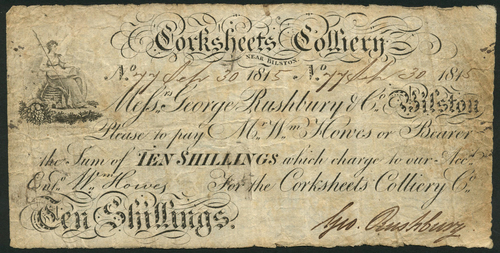 Corksheets Colliery
NEAR BILSTON
No. 77 Sep 30 1815 No. 77 Sep 30 1815
Messrs. George Rushbury & Co. Bilston
Please to pay Mr. Wm. Howes or Bearer
the Sum of TEN SHILLINGS which charge to our Acct.
Entd. Wm. Howes For the Corksheets Colliery Co.
Ten Shillings.
Geo. Rushbury